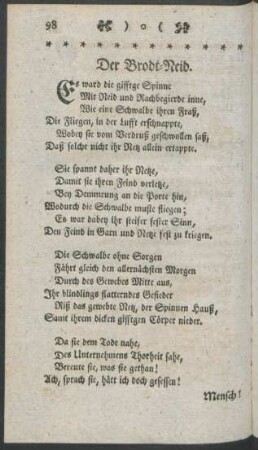 98
Der Brodt-Neid.
Es ward die gifftge Spinne
Mit Neid und Rachbegierde inne,
Wie eine Schwalbe ihren Fraß,
Die Fliegen, in der Lufft erschnappte,
Wobey sie vom Verdruß geschwollen saß,
Daß solche nicht ihr Netz allein ertappte.
Sie spannt daher ihr Netze,
Damit sie ihren Feind verletze,
Bey Demmrung an die Porte hin,
Wodurch die Schwalbe muste fliegen;
Es war dabey ihr steifer fester Sinn,
Den Feind in Garn und Netze fest zu kriegen.
Die Schwalbe ohne Sorgen
Fährt gleich den allernächsten Morgen
Durch des Gewebes Mitte aus,
Ihr blindlings flatterndes Gefieder
Riß das gewebte Netz, der Spinnen Hauß,
Samt ihrem dicken gifftgen Cörper nieder.
Da sie dem Tode nahe,
Des Unternehmens Thorheit sahe,
Bereute sie, was sie gethan!
Ach, sprach sie, hätt ich doch gesessen!
Mensch!